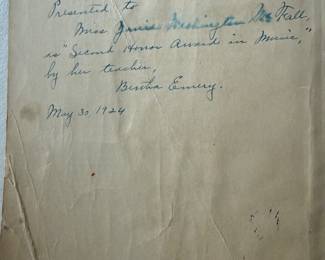 Presented to
Miss Janie Washington McFall,
as "Second Honor Award in Music,"
by her teacher,
Bertha Emery.
May 30, 1924